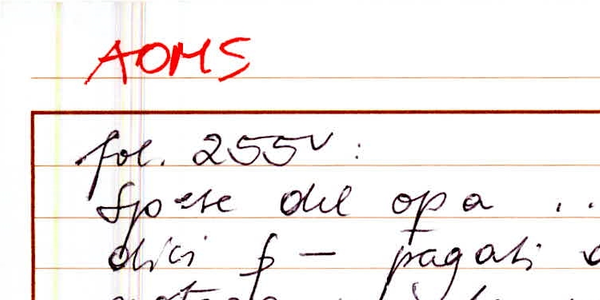 AOMS
fol. 255v :
Spese del opa ..
dici p — pagati